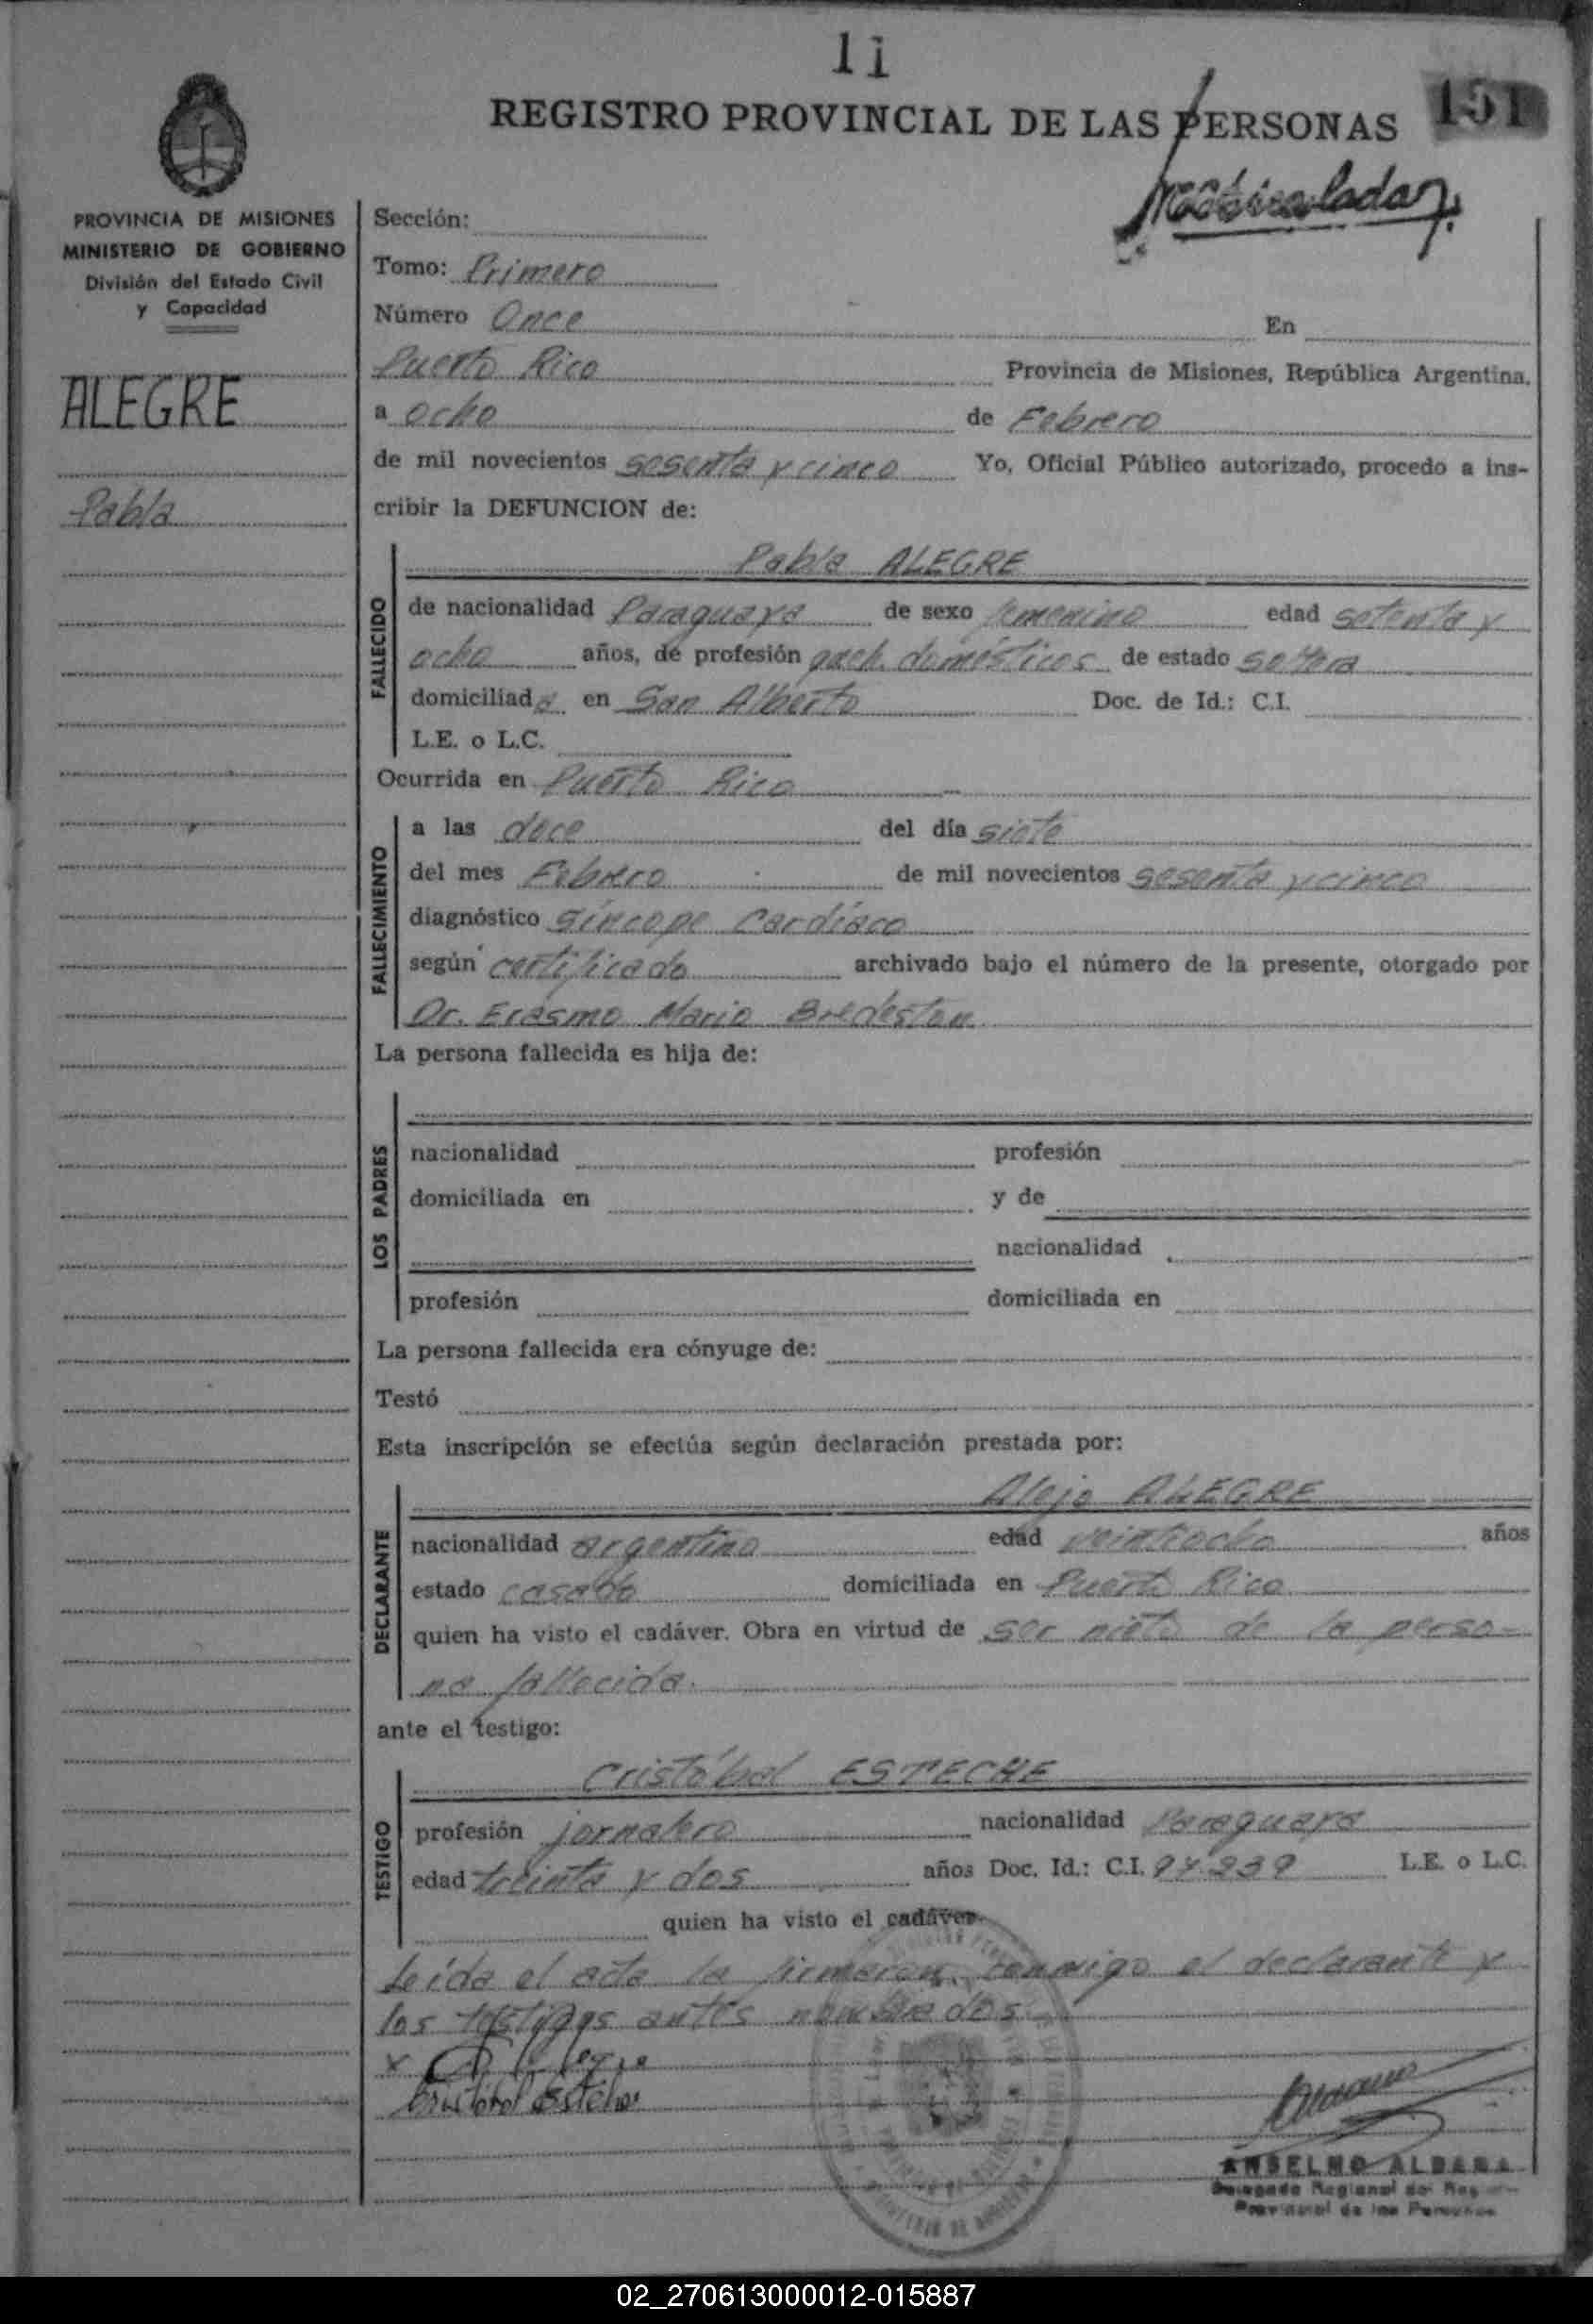 11
REGISTRO PROVINCIAL DE LAS PERSONAS
151
PROVINCIA DE MISIONES
MINISTERIO DE GOBIERNO
División del Estado Civil
y Capacidad
ALEGRE
Pabla
Sección:
Tomo: Primero
Número Once En
Puerto Rico Provincia de Misiones, República Argentina,
a ocho de Febrero
de mil novecientos sesenta y cinco Yo, Oficial Público autorizado, procedo a ins-
cribir la DEFUNCION de:
FALLECIDO
Pabla ALEGRE
de nacionalidad Paraguaya de sexo femenino edad setenta y
ocho años, de profesión queh. domésticos de estado soltera
domiciliada en San Alberto Doc. de Id.: C.I.
L.E. o L.C.
Ocurrida en Puerto Rico
FALLECIMIENTO
a las doce del día siete
del mes Febrero de mil novecientos sesenta y cinco
diagnóstico Síncope Cardíaco
según certificado archivado bajo el número de la presente, otorgado por
Dr. Erasmo Mario Bredeston
La persona fallecida es hija de:
LOS PADRES
nacionalidad profesión
domiciliada en y de
nacionalidad
profesión domiciliada en
La persona fallecida era cónyuge de:
Testó
Esta inscripción se efectúa según declaración prestada por:
DECLARANTE
Alejo ALEGRE
nacionalidad argentino edad veintiocho años
estado casado domiciliada en Puerto Rico
quien ha visto el cadáver. Obra en virtud de ser nieto de la perso-
na fallecida.
ante el testigo:
TESTIGO
Cristóbal ESTECHE
profesión jornalero nacionalidad Paraguaya
edad treinta y dos años Doc. Id.: C.I. 97.239 L.E. o L.C.
quien ha visto el cadáver.
Leída el acta la firmaron conmigo el declarante y
los testigos antes nombrados
x
Cristobal Esteche
ANSELMO ALDANA
Delegado Regional del Reg
Provincial de las Personas
02_270613000012-015887